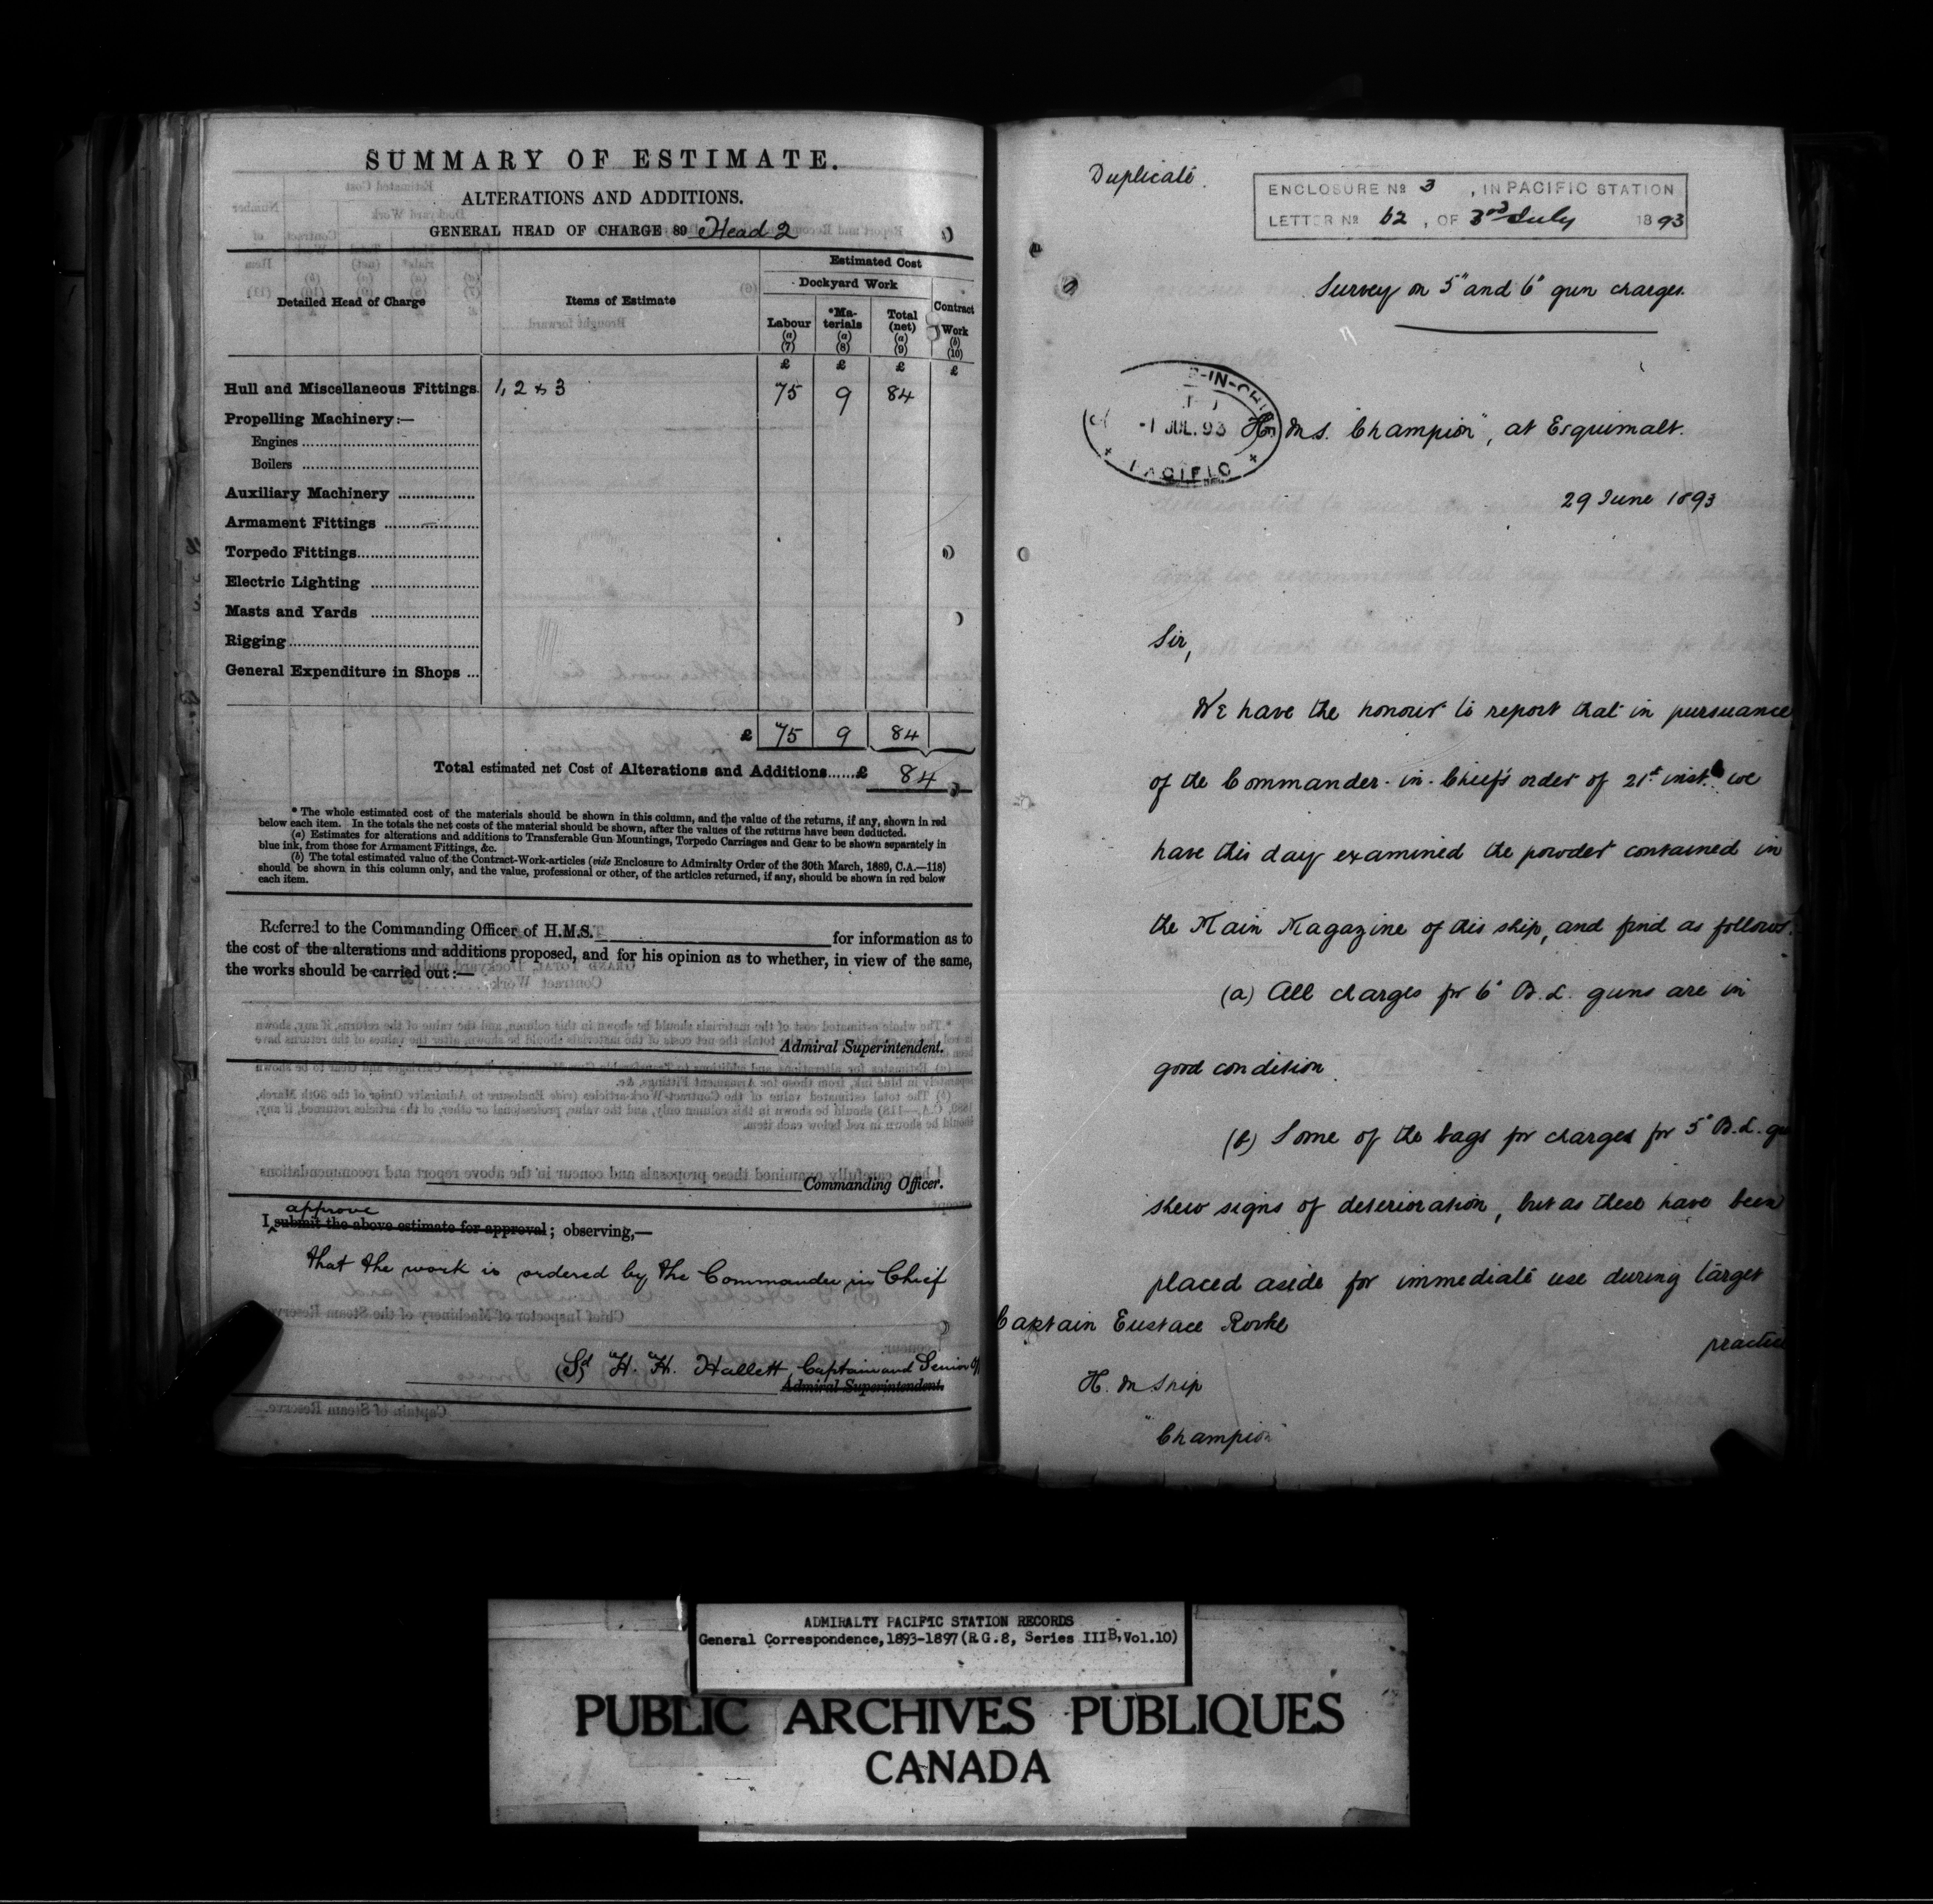 SUMMARY OF ESTIMATE.
ALTERATIONS AND ADDITIONS.
GENERAL HEAD OF CHARGE 89 Head 2
Estimated Cost
Dockyard Work
Detailed Head of Charge
Items of Estimate
Labour (a) (7)
*Ma-terials (a) (8)
Total (net) (a) (9)
Contract Work (b) (10)
£ £ £ £
Hull and Miscellaneous Fittings 1, 2 & 3 75 9 84
Propelling Machinery:—
Engines
Boilers
Auxiliary Machinery
Armament Fittings
Torpedo Fittings
Electric Lighting
Masts and Yards
Rigging
General Expenditure in Shops ...
£ 75 9 84
Total estimated net Cost of Alterations and Additions......£ 84
* The whole estimated cost of the materials should be shown in this column, and the value of the returns, if any, shown in red
below each item. In the totals the net costs of the material should be shown, after the values of the returns have been deducted.
(a) Estimates for alterations and additions to Transferable Gun Mountings, Torpedo Carriages and Gear to be shown separately in
blue ink, from those for Armament Fittings, &c.
(b) The total estimated value of the Contract-Work-articles (vide Enclosure to Admiralty Order of the 30th March, 1889, C.A.—118)
should be shown in this column only, and the value, professional or other, of the articles returned, if any, should be shown in red below
each item.
Referred to the Commanding Officer of H.M.S. for information as to
the cost of the alterations and additions proposed, and for his opinion as to whether, in view of the same,
the works should be carried out:—
Admiral Superintendent.
Commanding Officer.
approve
I submit the above estimate for approval; observing,—
that the work is ordered by the Commander in Chief
(Sd H. H. Hallett, Captain and Senior
Admiral Superintendent.
Duplicate.
ENCLOSURE No 3, IN PACIFIC STATION
LETTER No 62, OF 3rd July 1893
Survey on 5" and 6" gun charges.
-IN-CHIEF
-1 JUL. 93
PACIFIC
H.M.S. "Champion", at Esquimalt.
29 June 1893
Sir,
We have the honour to report that in pursuance
of the Commander-in-Chief's order of 21st inst. we
have this day examined the powder contained in
the Main Magazine of this ship, and find as follows.
(a) All charges for 6" B.L. guns are in
good condition
(b) Some of the bags for charges for 5" B.L.
shew signs of deterioration, but as these have been
placed aside for immediate use during target
practice
Captain Eustace Rooke
H.M Ship
"Champion"
ADMIRALTY PACIFIC STATION RECORDS
General Correspondence, 1893-1897 (R.G.8, Series III B, Vol.10)
PUBLIC ARCHIVES PUBLIQUES
CANADA